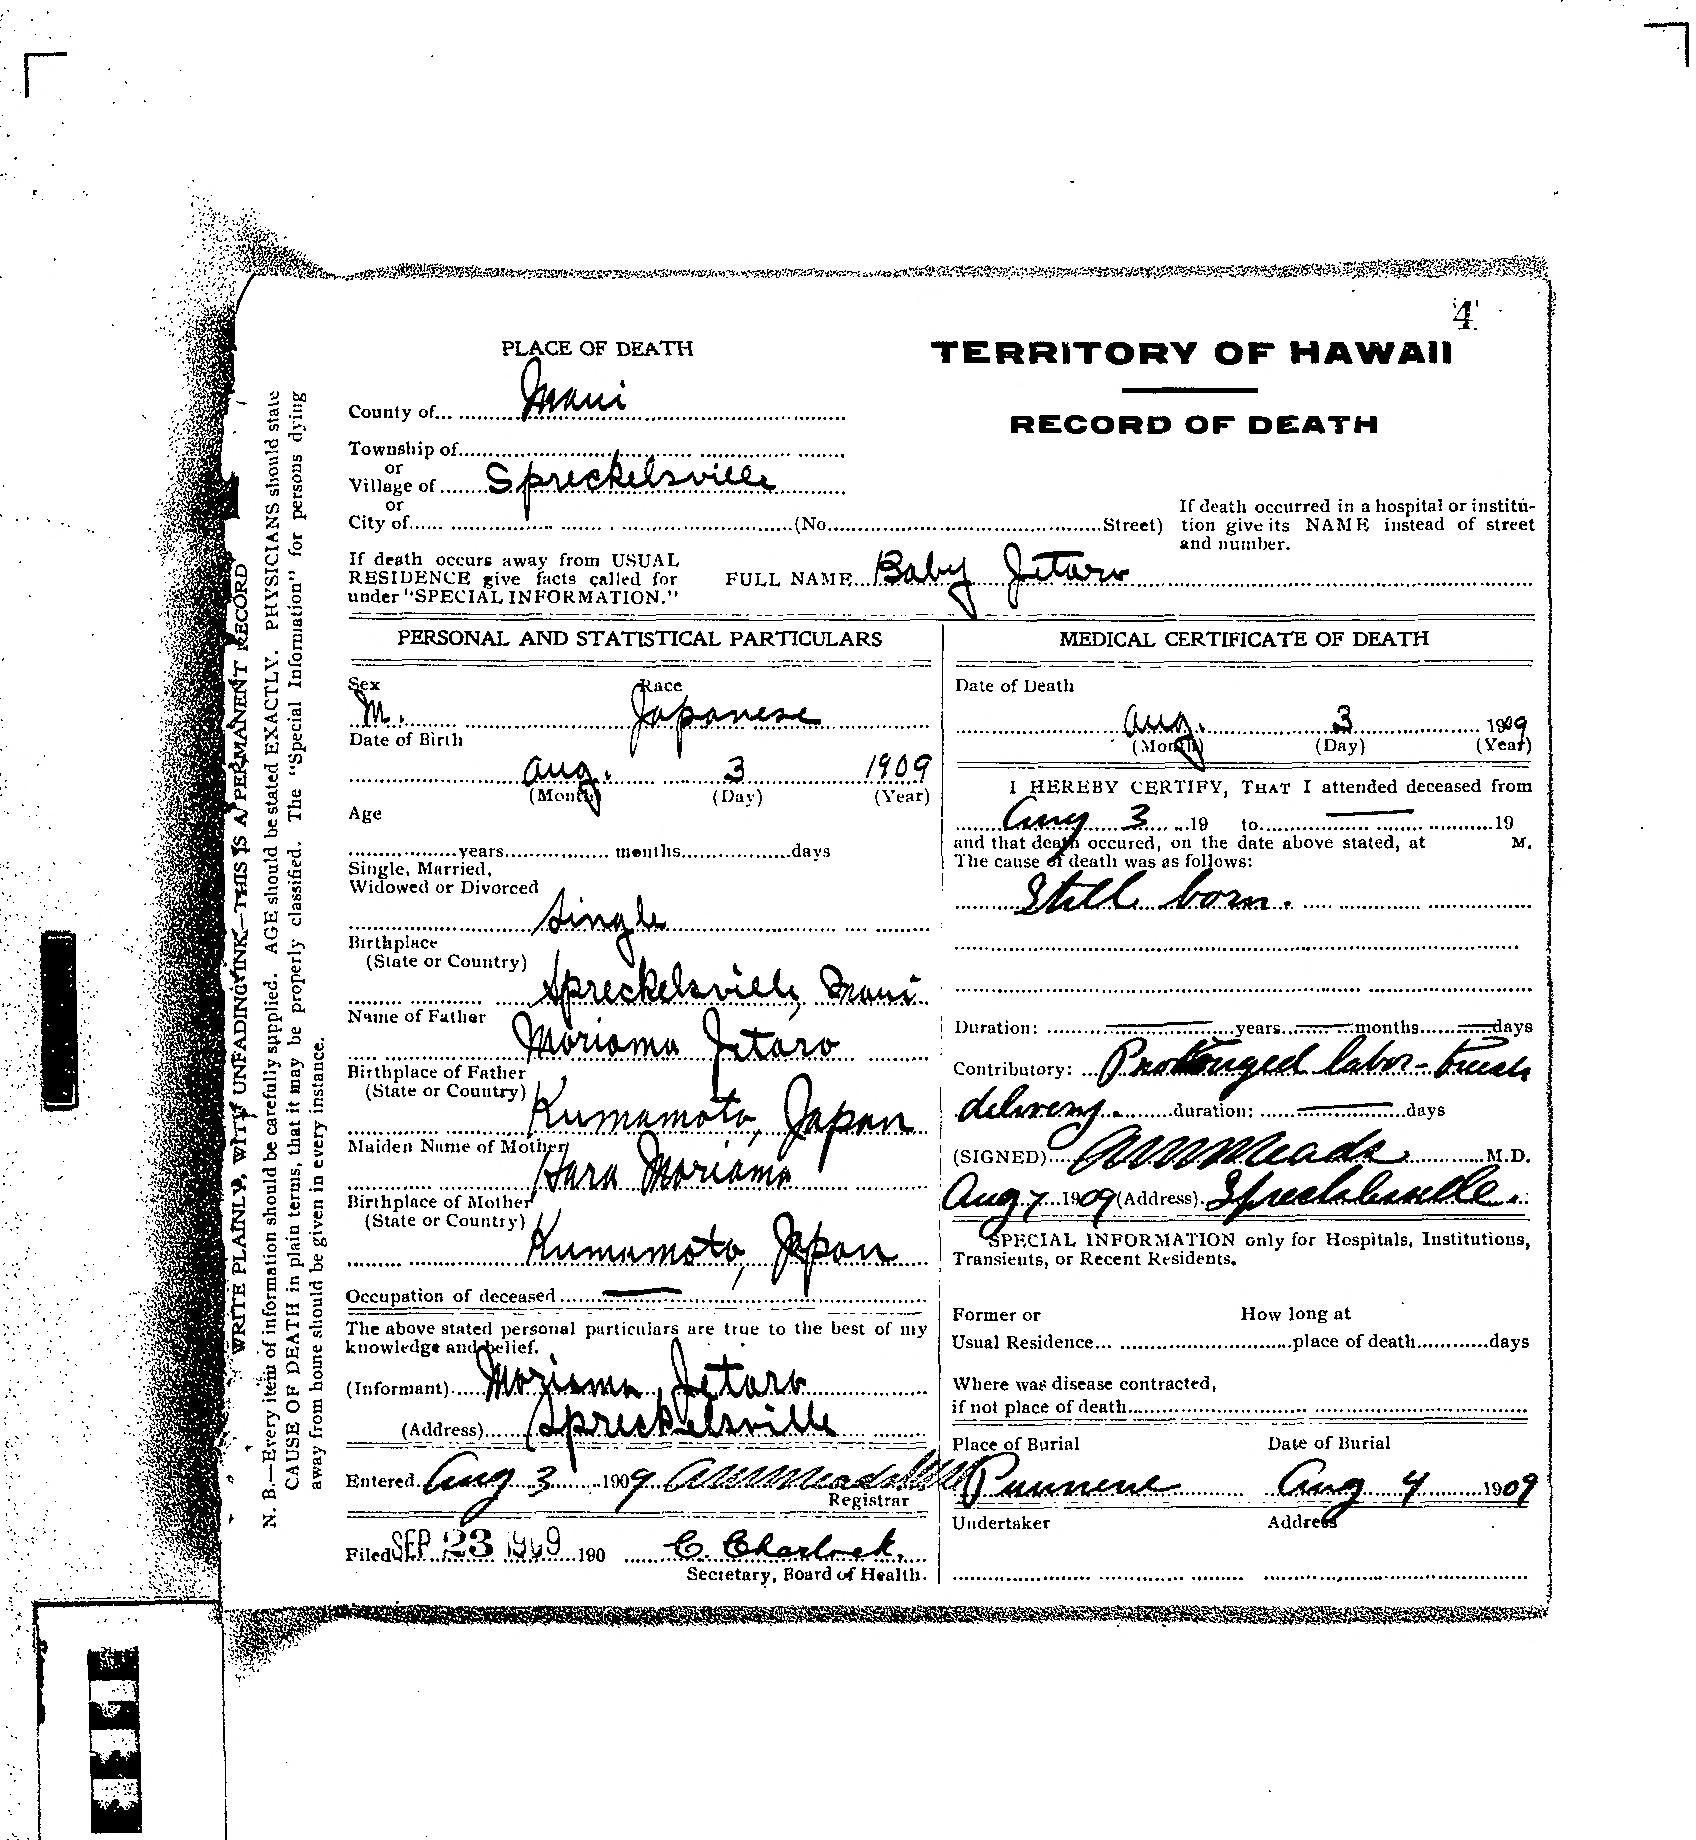 4
PLACE OF DEATH
TERRITORY OF HAWAII
County of Maui
RECORD OF DEATH
Township of
or
Village of Spreckelsville
or
City of (No. Street)
If death occurred in a hospital or institu-
tion give its NAME instead of street
and number.
If death occurs away from USUAL
RESIDENCE give facts called for
under "SPECIAL INFORMATION."
FULL NAME Baby Jitaro
PERSONAL AND STATISTICAL PARTICULARS
Sex Race
M. Japanese
Date of Birth
Aug. 3 1909
(Month) (Day) (Year)
Age
years months days
Single, Married,
Widowed or Divorced
Single
Birthplace
(State or Country)
Spreckelsville, Maui
Name of Father
Moriama Jitaro
Birthplace of Father
(State or Country)
Kumamoto, Japan
Maiden Name of Mother
Hara Moriama
Birthplace of Mother
(State or Country)
Kumamoto, Japan
Occupation of deceased —
The above stated personal particulars are true to the best of my
knowledge and belief.
(Informant) Moriama Jitaro
(Address) Spreckelsville
Entered Aug 3 1909
Registrar
Filed SEP 23 1909 190 C. Charlock.
Secretary, Board of Health.
MEDICAL CERTIFICATE OF DEATH
Date of Death
Aug. 3 1909
(Month) (Day) (Year)
I HEREBY CERTIFY, THAT I attended deceased from
Aug 3 19 to — 19
and that death occured, on the date above stated, at M.
The cause of death was as follows:
Still born.
Duration: — years — months — days
Contributory: Prolonged labor - Breech
delivery. duration: — days
(SIGNED) M.D.
Aug 7 1909 (Address) Spreckelsville.
SPECIAL INFORMATION only for Hospitals, Institutions,
Transients, or Recent Residents.
Former or How long at
Usual Residence place of death days
Where was disease contracted,
if not place of death
Place of Burial Date of Burial
Puunene Aug 4 1909
Undertaker Address
WRITE PLAINLY, WITH UNFADING INK—THIS IS A PERMANENT RECORD
N. B.—Every item of information should be carefully supplied. AGE should be stated EXACTLY. PHYSICIANS should state
CAUSE OF DEATH in plain terms, that it may be properly classified. The "Special Information" for persons dying
away from home should be given in every instance.